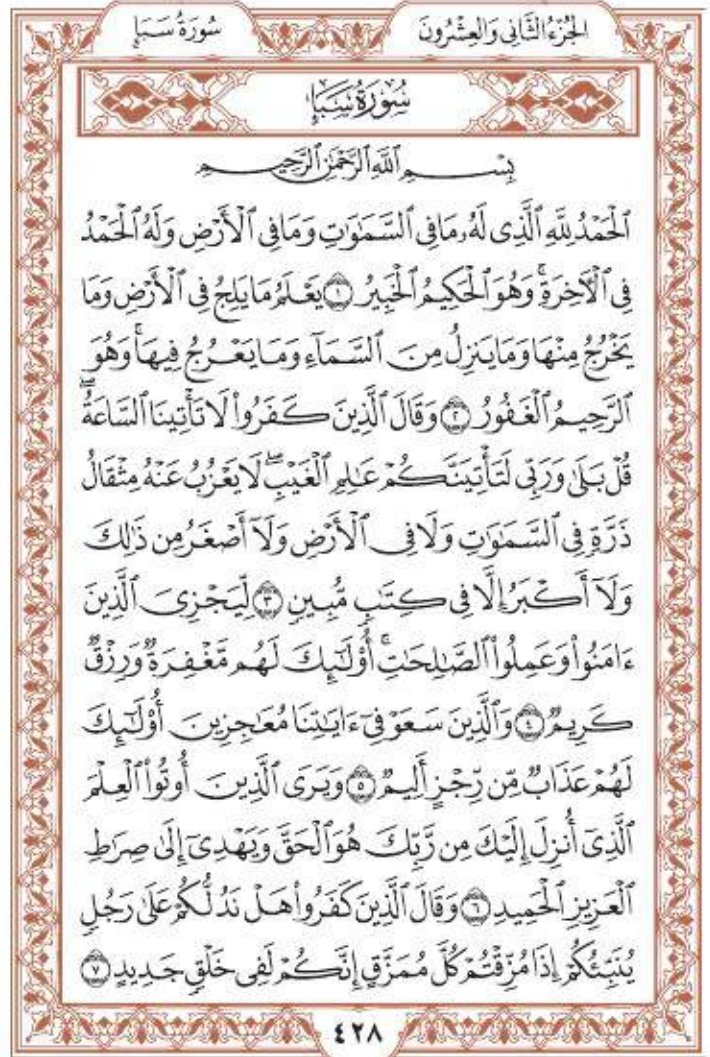 الجُزْءُ الثَّانِي وَالعِشْرُونَ
سُورَةُ سَبَإٍ
سُورَةُ سَبَإٍ
بِسۡمِ ٱللَّهِ ٱلرَّحۡمَٰنِ ٱلرَّحِيمِ
ٱلۡحَمۡدُ لِلَّهِ ٱلَّذِي لَهُۥ مَا فِي ٱلسَّمَٰوَٰتِ وَمَا فِي ٱلۡأَرۡضِ وَلَهُ ٱلۡحَمۡدُ
فِي ٱلۡأٓخِرَةِۚ وَهُوَ ٱلۡحَكِيمُ ٱلۡخَبِيرُ ١ يَعۡلَمُ مَا يَلِجُ فِي ٱلۡأَرۡضِ وَمَا
يَخۡرُجُ مِنۡهَا وَمَا يَنزِلُ مِنَ ٱلسَّمَآءِ وَمَا يَعۡرُجُ فِيهَاۚ وَهُوَ
ٱلرَّحِيمُ ٱلۡغَفُورُ ٢ وَقَالَ ٱلَّذِينَ كَفَرُواْ لَا تَأۡتِينَا ٱلسَّاعَةُۖ
قُلۡ بَلَىٰ وَرَبِّي لَتَأۡتِيَنَّكُمۡ عَٰلِمِ ٱلۡغَيۡبِۖ لَا يَعۡزُبُ عَنۡهُ مِثۡقَالُ
ذَرَّةٖ فِي ٱلسَّمَٰوَٰتِ وَلَا فِي ٱلۡأَرۡضِ وَلَآ أَصۡغَرُ مِن ذَٰلِكَ
وَلَآ أَكۡبَرُ إِلَّا فِي كِتَٰبٖ مُّبِينٖ ٣ لِّيَجۡزِيَ ٱلَّذِينَ
ءَامَنُواْ وَعَمِلُواْ ٱلصَّٰلِحَٰتِۚ أُوْلَٰٓئِكَ لَهُم مَّغۡفِرَةٞ وَرِزۡقٞ
كَرِيمٞ ٤ وَٱلَّذِينَ سَعَوۡ فِيٓ ءَايَٰتِنَا مُعَٰجِزِينَ أُوْلَٰٓئِكَ
لَهُمۡ عَذَابٞ مِّن رِّجۡزٍ أَلِيمٞ ٥ وَيَرَى ٱلَّذِينَ أُوتُواْ ٱلۡعِلۡمَ
ٱلَّذِيٓ أُنزِلَ إِلَيۡكَ مِن رَّبِّكَ هُوَ ٱلۡحَقَّ وَيَهۡدِيٓ إِلَىٰ صِرَٰطِ
ٱلۡعَزِيزِ ٱلۡحَمِيدِ ٦ وَقَالَ ٱلَّذِينَ كَفَرُواْ هَلۡ نَدُلُّكُمۡ عَلَىٰ رَجُلٖ
يُنَبِّئُكُمۡ إِذَا مُزِّقۡتُمۡ كُلَّ مُمَزَّقٍ إِنَّكُمۡ لَفِي خَلۡقٖ جَدِيدٍ ٧
٤٢٨